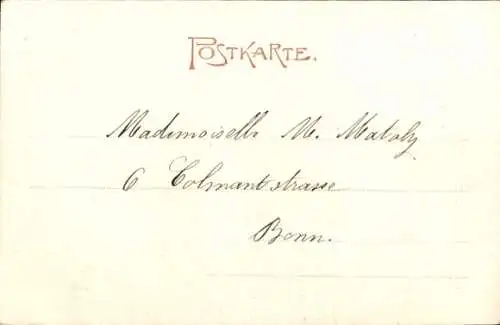 POSTKARTE.
Mademoiselle M.
6 Colmantstrasse
Bonn.